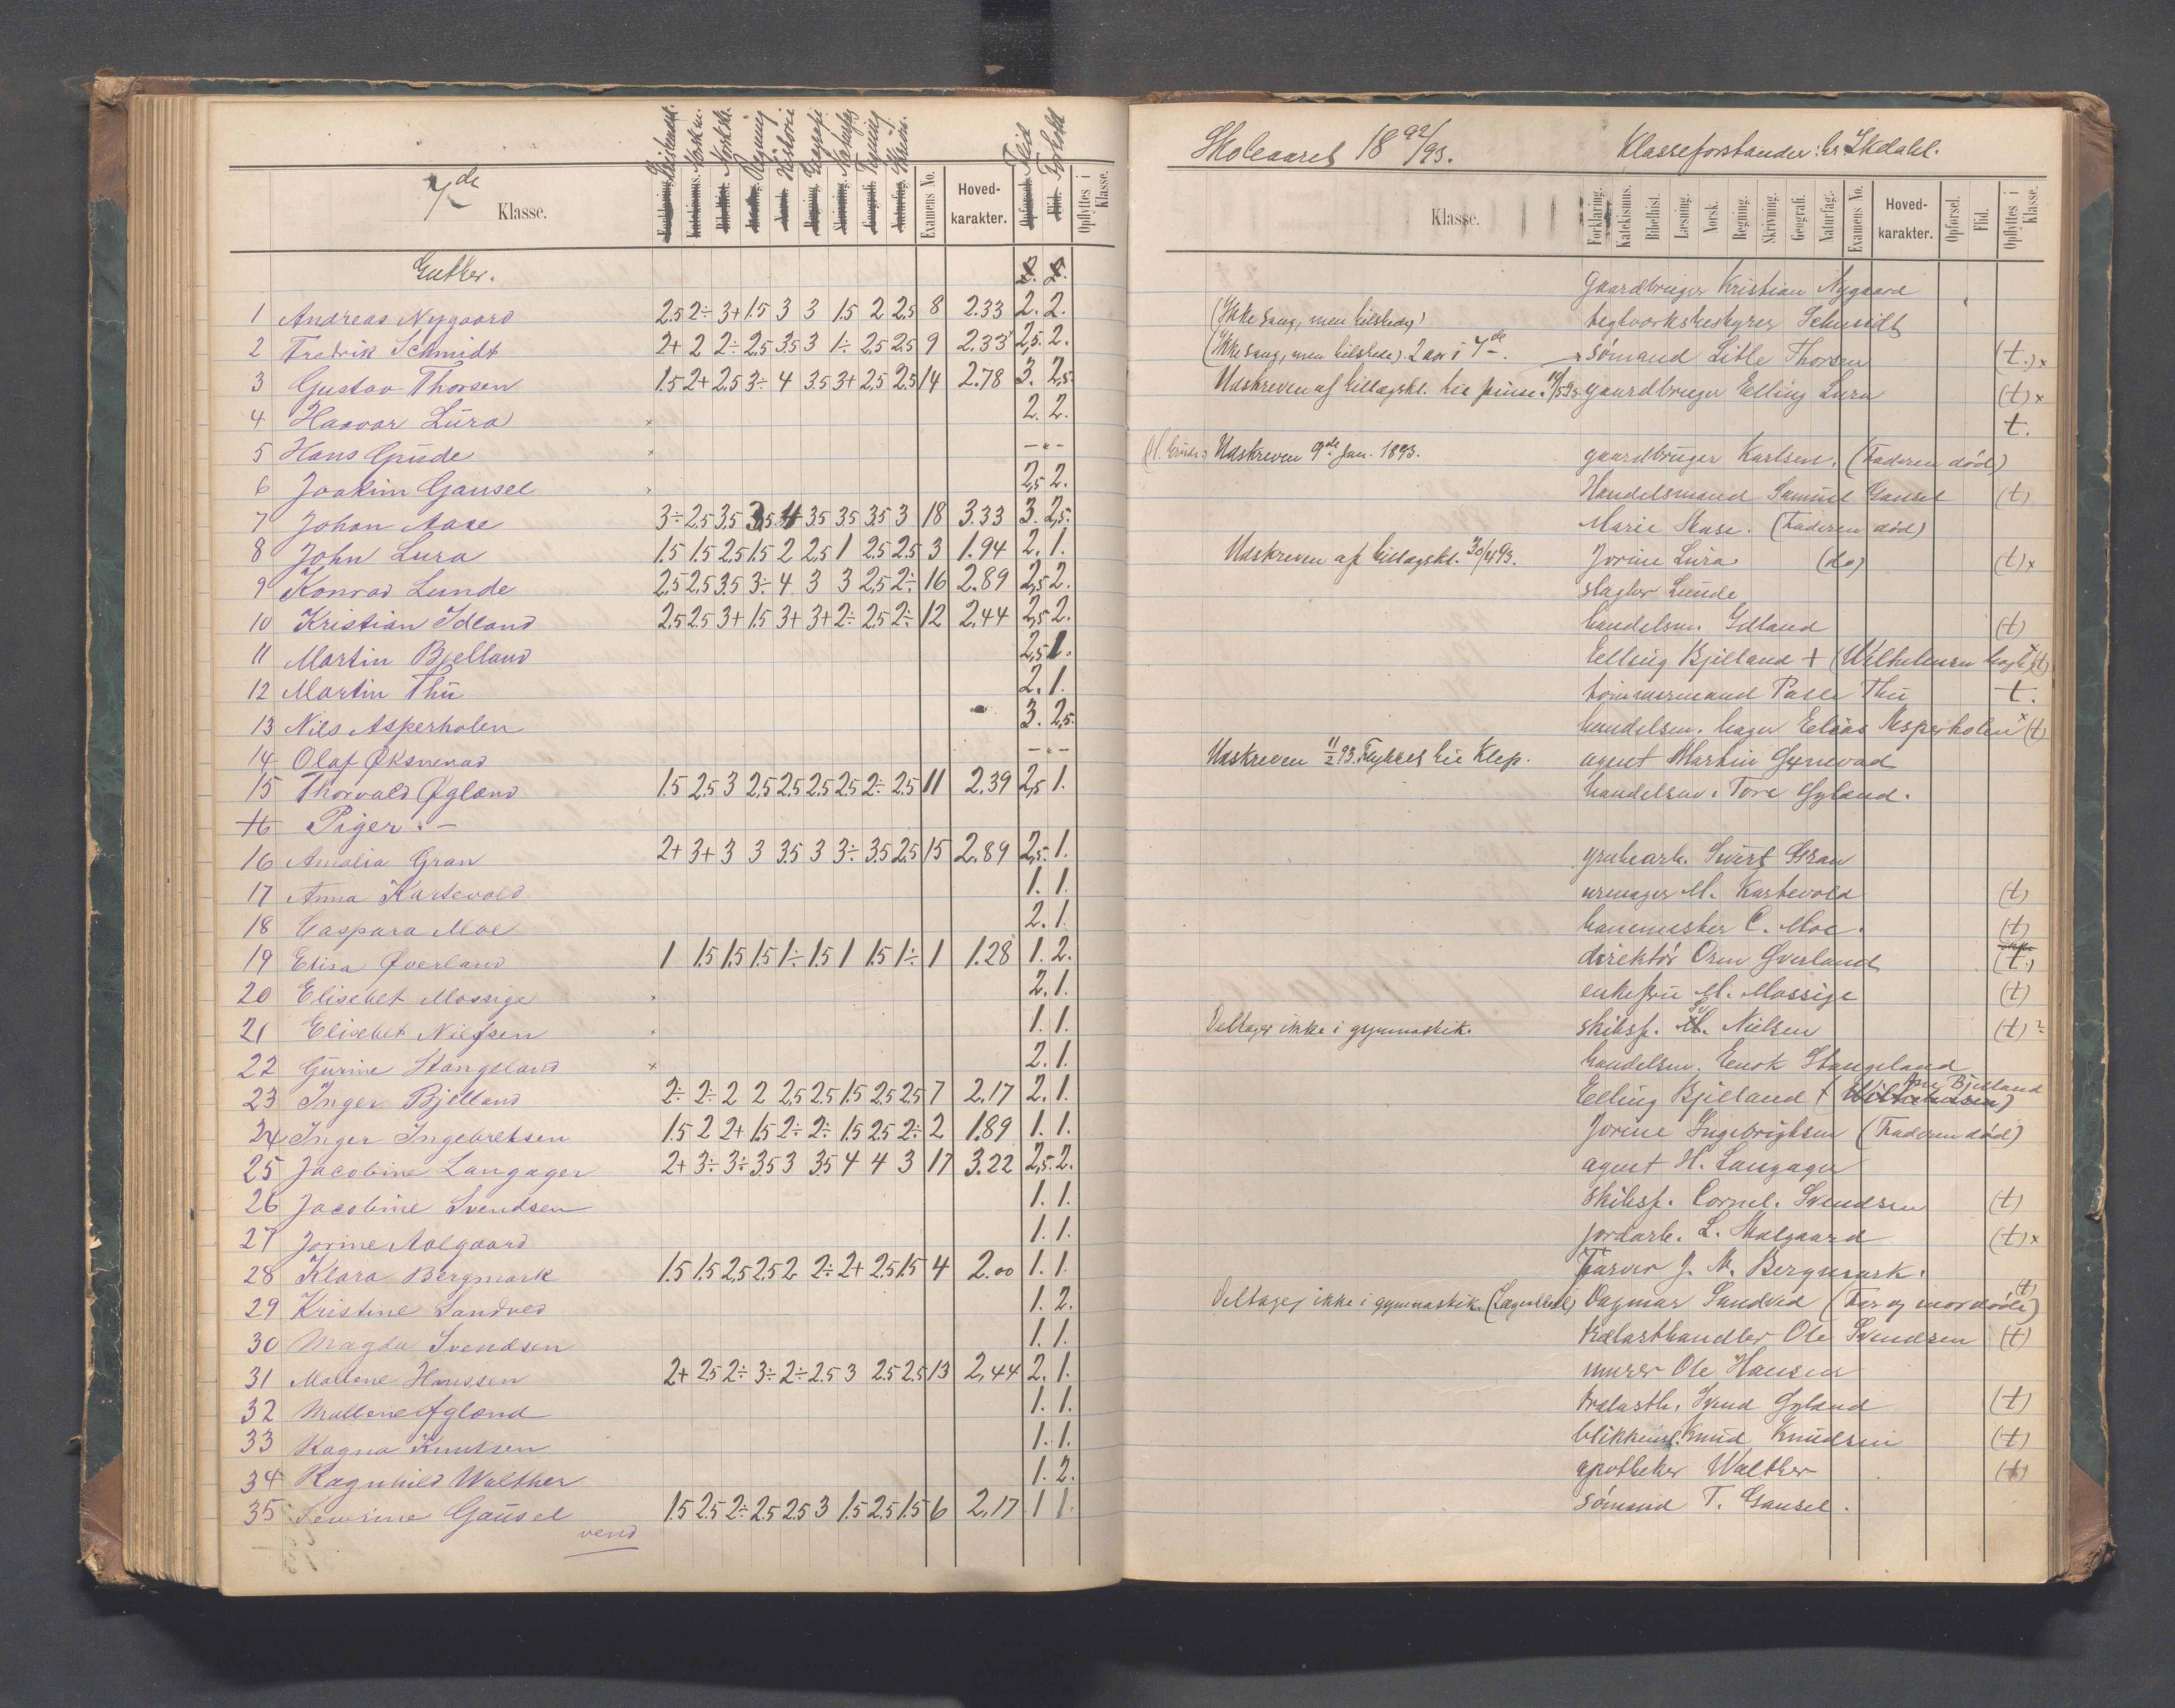 7de Klasse.
Examens No.
Hoved-karakter.
Flid
Forhold
Opflyttes i Klasse.
Gutter.
1 Andreas Nygaard 2.5 2÷ 3+ 1.5 3 3 1.5 2 2.5 8 2.33 2. 2.
2 Fredrik Schmidt 2+ 2 2÷ 2.5 3.5 3 1÷ 2.5 2.5 9 2.33 2,5. 2.
3 Gustav Thorsen 1.5 2+ 2.5 3÷ 4 3.5 3+ 2.5 2.5 14 2.78 3. 2,5.
4 Haavar Lura × 2. 2.
5 Hans Gude × – „ –
6 Joakim Gausel 2,5 2.
7 Johan Aase 3÷ 2.5 3.5 3.5 4 3.5 3.5 3.5 3 18 3.33 3. 2,5.
8 John Lura 1.5 1.5 2.5 1.5 2 2.5 1 2.5 2.5 3 1.94 2. 1.
9 Konrad Lunde 2.5 2.5 3.5 3÷ 4 3 3 2.5 2÷ 16 2.89 2,5 2.
10 Kristian Idland 2.5 2.5 3+ 1.5 3+ 3+ 2÷ 2.5 2÷ 12 2.44 2,5 2.
11 Martin Bjelland 2,5 1.
12 Martin Thu 2. 1.
13 Nils Asperholen 3. 2,5.
14 Olaf Øksnevad – „ –
15 Thorvald Øgland 1.5 2.5 3 2.5 2.5 2.5 2.5 2÷ 2.5 11 2.39 2,5 1.
16 Piger. –
16 Amalia Gran 2+ 3+ 3 3 3.5 3 3÷ 3.5 2.5 15 2.89 2,5. 1.
17 Anna Kartevold 1. 1.
18 Caspara Moe 2. 1.
19 Elisa Øverland 1 1.5 1.5 1.5 1÷ 1.5 1 1.5 1÷ 1 1.28 1. 2.
20 Elisebet Mossige × 2. 1.
21 Elisebet Nielsen × 1. 1.
22 Gurine Stangeland × 2. 1.
23 Inger Bjelland 2÷ 2÷ 2 2 2.5 2.5 1.5 2.5 2.5 7 2.17 2. 1.
24 Inger Ingebretsen 1.5 2 2+ 1.5 2÷ 2÷ 1.5 2.5 2÷ 2 1.89 1. 1.
25 Jacobine Langager 2+ 3÷ 3÷ 3.5 3 3.5 4 4 3 17 3.22 2,5. 2.
26 Jacobine Svendsen 1. 1.
27 Jorine Aalgaard 1. 1.
28 Klara Bergmark 1.5 1.5 2.5 2.5 2 2÷ 2+ 2.5 1.5 4 2.00 1. 1.
29 Kristine Sandved 1. 2.
30 Magda Svendsen 1. 1.
31 Mallene Hanssen 2+ 2.5 2÷ 3÷ 2÷ 2.5 3 2.5 2.5 13 2,44 2. 1.
32 Mallene Øgland 1. 1.
33 Ragna Knutsen 1. 1.
34 Ragnhild Walther 1. 2.
35 Severine Gausel 1.5 2.5 2÷ 2.5 2.5 3 1.5 2.5 1.5 6 2.17 1 1.
vend
Skoleaaret 1892/93. Klasseforstander: hr. Skdahl.
Klasse.
Forklaring.
Katekismus.
Bibelhist.
Læsning.
Norsk.
Regning.
Skrivning.
Geografi.
Naturfag.
Examens No.
Hoved-karakter.
Opførsel.
Flid.
Opflyttes i Klasse.
Gaardbruger Kristian Nygaard
(Ikke sang, men tilstede) teglverksbestyrer Schmidt
(Ikke sang, men tilstede). 2 aar i 7de. sømand Litle Thorsen (t.) ×
Udskreven af tillægskl. til pinse. gaardbruger Elling Lura (t) ×
t.
Udskreven 9de Jan. 1893. gaardbruger Karlsen. (Faderen død)
Handelsmand Samuel Gausel (t)
Marie Aase. (Faderen død)
Udskreven af tillægskl. 30/4 93. Jorine Lura (do) (t) ×
slagter Lunde
handelsm. Idland (t)
Elling Bjelland + (t)
tømmermand Palle Thu t.
handelsm. Elias Asperholen × (t)
Udskreven 11/2 93. Flyttet til Klep. agent Martin Øxnevad
handelsm. Tore Øgland.
grubearb. Sivert Gran
urmager M. Kartevold (t)
C. Moe. (t)
direktør Øverland (t.)
enkefru M. Mossige (t)
Deltager ikke i gymnastik. skibsf. Nielsen (t) ?
handelsm. Enok Stangeland
Elling Bjelland + Bjelland
Jorine Ingebrigtsen (Faderen død)
agent H. Langager
skibsf. Cornel. Svendsen (t)
jordarb. L. Aalgaard (t) ×
Farver J. M. Bergmark.
Deltager ikke i gymnastik. Dagmar Sandved (Far og mor døde) (t)
trælasthandler Ole Svendsen (t)
murer Ole Hansen
trælasth. Svend Øgland (t)
Knud Knudsen (t)
apotheker Walther (t)
sømand T. Gausel.